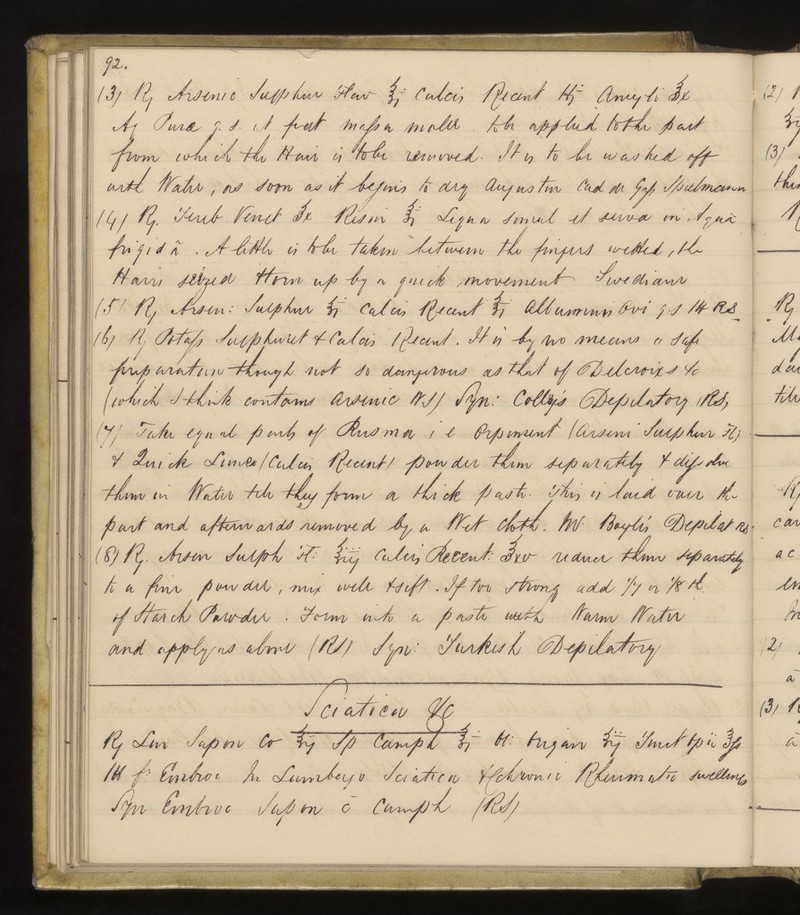 92.
(3) ℞ Arsenic Sulphur Flav ℥j Calcis Recent ℔j Amyli ℥x
Aq Puræ q.s. ut fiat massa molle to be applied to the part
from which the Hair is to be removed. It is to be washed off
with Water, as soon as it begins to dry Augustin Cad de Gass Spielmann
(4) ℞. Tereb Venet ℥x Resin ℥j Liqua simul et serva in Aqua
frigidā. A little is to be taken between the fingers wetted, the
Hairs seized & torn up by a quick movement Swediaur
(5) ℞ Arsen: Sulphur ℥j Calcis Recent ℥j Albuminis Ovi q s M RS
(6) ℞ Potass Sulphuret & Calcis Recent. It is by no means a safe
preparation though not so dangerous as that of Delcroixs &c
(which I think contains Arsenic WS) Syn: Colley's Depilatory (RS)
(7) Take equal parts of Rusma i e Orpiment (Arseni Sulphur Fl)
& Quick Lime (Calcis Recent) powder them separately & dissolve
them in Water till they form a thick paste. This is laid over the
part and afterwards removed by a Wet Cloth. Mr Bayle's Depilat RS.
(8) ℞. Arsen Sulph Fl: Calcis Recent: ℥xv reduce them separately
to a fine powder, mix well & sift. If too strong add 1/7 or 1/8 th
of Starch Powder. Form into a paste with Warm Water
and apply as above (RS) Syn: Turkish Depilatory
Sciatica &c
℞ Lin Sapon Co Sp Camph Ol: Origani Tinct Opii ℥ss
M ft Embroc In Lumbago Sciatica & Chronic Rheumatic swellings
Syn Embroc Sapon c̄ Camph (RS)
(2)
(3)
℞
℞
℞
(2)
(3)